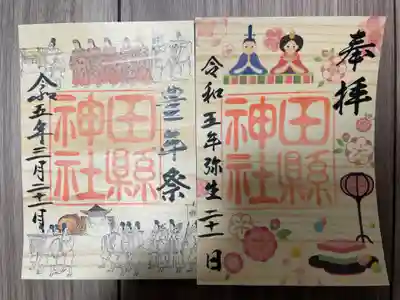 豊年祭
田縣
神社
令和五年三月二十一日
奉拝
田縣
神社
令和五年弥生二十一日